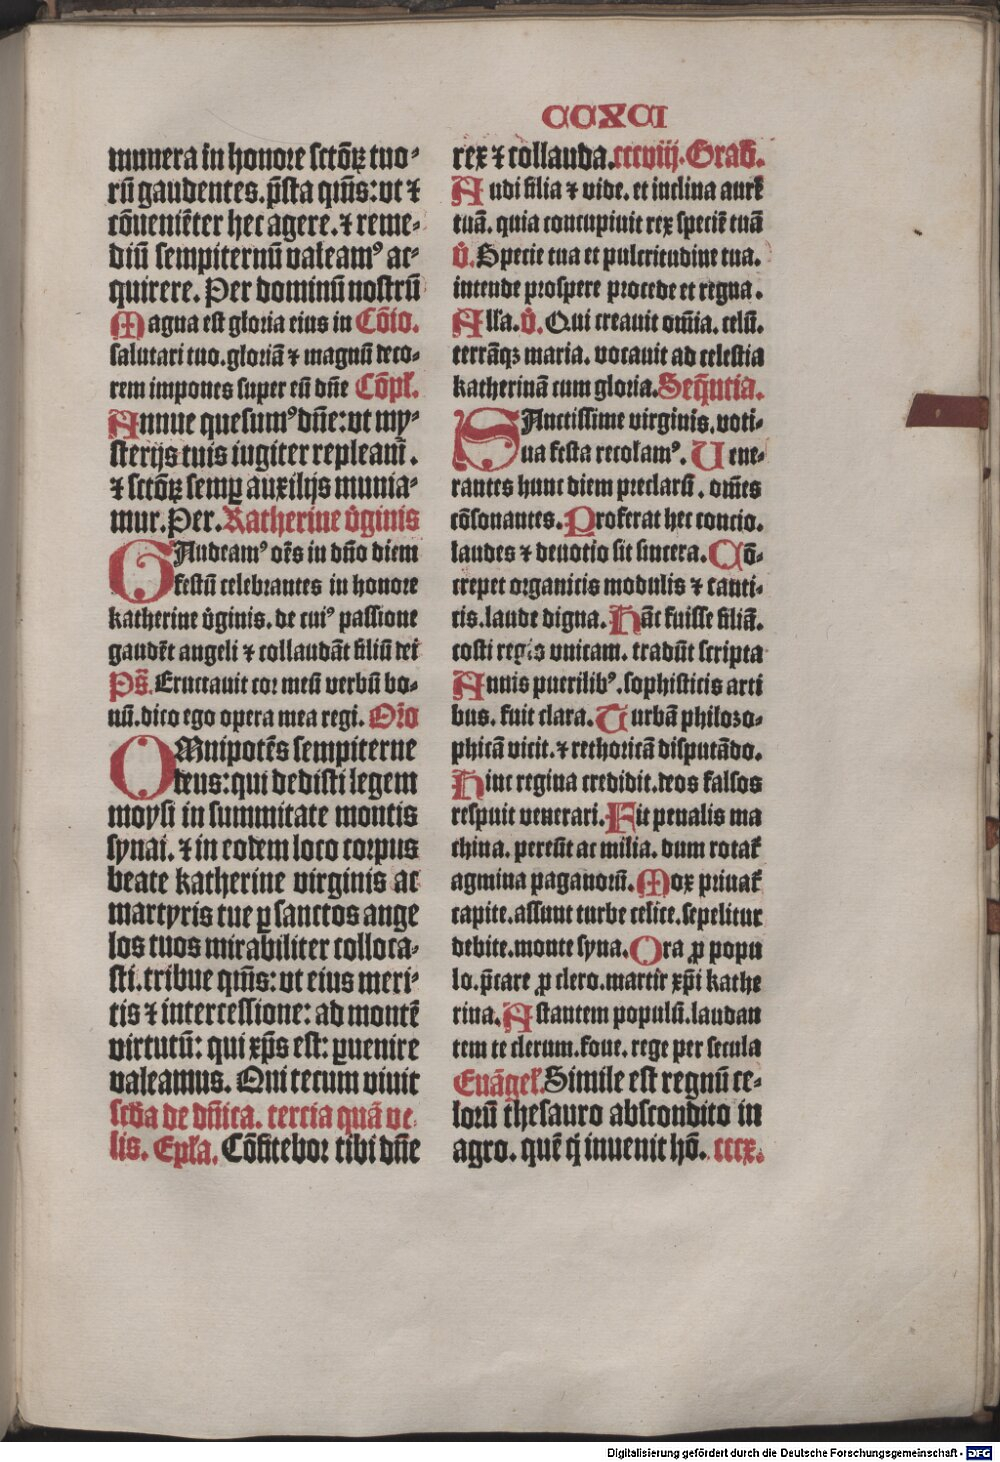 CCXCI
munera in honore sctōꝝ tuo⸗
rū gaudentes. p̄sta qm̄s: vt ⁊
cōueniēter hec agere. ⁊ reme⸗
diū sempiternū valeamꝰ ac⸗
quirere. Per dominū nostrū
Magna est gloria eius in Cōīo.
salutari tuo. gloriā ⁊ magnū deco⸗
rem impones super eū dn̄e Cōpl̄.
Annue quesumꝰ dn̄e: vt my⸗
sterijs tuis iugiter repleam̄.
⁊ sctōꝝ semꝑ auxilijs munia⸗
mur. Per. Katherine v̄ginis
GAudeamꝰ oēs in dn̄o diem
festū celebrantes in honore
katherine v̄ginis. de cuiꝰ passione
gaudēt angeli ⁊ collaudāt filiū dei
Ps̄. Eructauit cor meū verbū bo⸗
nū. dico ego opera mea regi. Or̄o
OMnipotēs sempiterne
deus: qui dedisti legem
moysi in summitate montis
synai. ⁊ in eodem loco corpus
beate katherine virginis ac
martyris tue ꝑ sanctos ange
los tuos mirabiliter colloca⸗
sti. tribue qm̄s: vt eius meri⸗
tis ⁊ intercessione: ad montē
virtutū: qui xp̄s est: ꝑuenire
valeamus. Qui tecum viuit
scd̄a de dn̄ica. tercia quā ve⸗
lis. Epl̄a. Cōfitebor tibi dn̄e
rex ⁊ collauda. cccviij. Grad̄.
Audi filia ⁊ vide. et inclina aurē
tuā. quia concupiuit rex speciē tuā
v̄. Specie tua et pulcritudine tua.
intende prospere procede et regna.
All'a. v̄. Qui creauit om̄ia. celū.
terrāqꝫ maria. vocauit ad celestia
katherinā cum gloria. Seq̄ntia.
SAnctissime virginis. voti⸗
ua festa recolamꝰ. Uene⸗
rantes hunc diem preclarū. om̄es
cōsonantes. Proferat hec concio.
laudes ⁊ deuotio sit sincera. Cō⸗
crepet organicis modulis ⁊ canti⸗
cis. laude digna. Hāc fuisse filiā.
costi regis vnicam. tradūt scripta
Annis puerilibꝰ. sophisticis arti
bus. fuit clara. Turbā philozo⸗
phicā vicit. ⁊ rethoricā disputādo.
Hinc regina credidit. deos falsos
respuit venerari. Fit penalis ma
china. pereūt ac milia. dum rotat̄
agmina paganorū. Mox priuat̄
capite. assunt turbe celice. sepelitur
debite. monte syna. Ora ꝓ popu
lo. p̄care ꝓ clero. martir xp̄i kathe
rina. Astantem populū. laudan
tem te clerum. foue. rege per secula
Euāgel̄. Simile est regnū ce⸗
lorū thesauro abscondito in
agro. quē q̄ inuenit hō. cccx.
Digitalisierung gefördert durch die Deutsche Forschungsgemeinschaft - DFG